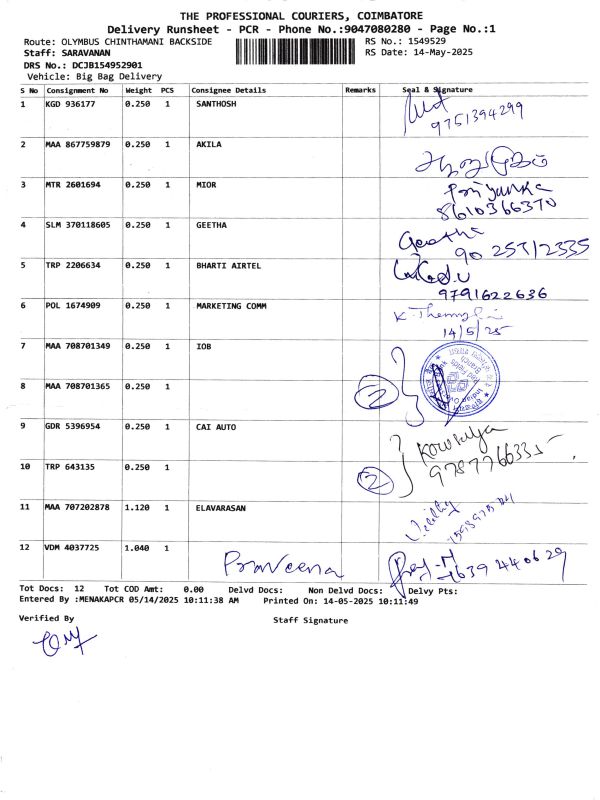 THE PROFESSIONAL COURIERS, COIMBATORE
Delivery Runsheet - PCR - Phone No.:9047080280 - Page No.:1
Route: OLYMBUS CHINTHAMANI BACKSIDE RS No.: 1549529
Staff: SARAVANAN RS Date: 14-May-2025
DRS No.: DCJB154952901
Vehicle: Big Bag Delivery
S No Consignment No Weight PCS Consignee Details Remarks Seal & Signature
1 KGD 936177 0.250 1 SANTHOSH
9751394299
2 MAA 867759879 0.250 1 AKILA
3 MTR 2601694 0.250 1 MIOR Priyanka
8610366370
4 SLM 370118605 0.250 1 GEETHA Geetha
90 25712335
5 TRP 2206634 0.250 1 BHARTI AIRTEL
9791622636
6 POL 1674909 0.250 1 MARKETING COMM
14/5/25
7 MAA 708701349 0.250 1 IOB
8 MAA 708701365 0.250 1 2
9 GDR 5396954 0.250 1 CAI AUTO
9787766335
10 TRP 643135 0.250 1 2
11 MAA 707202878 1.120 1 ELAVARASAN
12 VDM 4037725 1.040 1 Praveena
7639440629
Tot Docs: 12 Tot COD Amt: 0.00 Delvd Docs: Non Delvd Docs: Delvy Pts:
Entered By :MENAKAPCR 05/14/2025 10:11:38 AM Printed On: 14-05-2025 10:11:49
Verified By Staff Signature